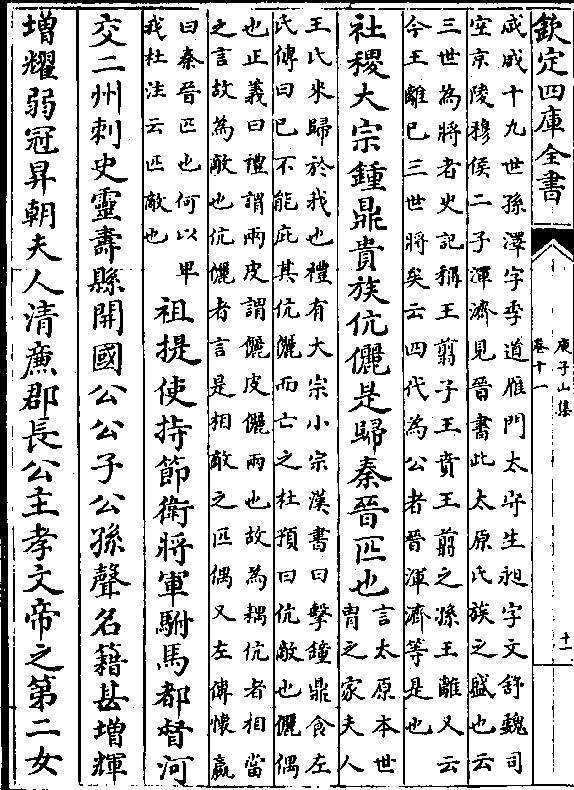 庾子山集
卷十一
十一
欽定四庫全書
咸咸十九世孫澤字季道雁門太守生昶字文舒魏司
空京陵穆侯二子渾濟見晉書此太原氏族之盛也云
三世為將者史記稱王翦子王賁王翦之孫王離又云
今王離已三世將矣云四代為公者晉渾濟等是也
社稷大宗鍾鼎貴族伉儷是歸秦晉匹也
言太原本世
胄之家夫人
王氏來歸於我也禮有大宗小宗漢書曰擊鐘鼎食左
氏傳曰已不能庇其伉儷而亡之杜預曰伉敵也儷偶
也正義曰禮謂兩皮謂儷皮儷兩也故為耦伉者相當
之言故為敵也伉儷者言是相敵之匹偶又左傳懷嬴
曰秦晉匹也何以卑
我杜注云匹敵也
祖提使持節衛將軍駙馬都督河
交二州刺史靈壽縣開國公公子公孫聲名籍甚增輝
增耀弱冠昇朝夫人清廉郡長公主孝文帝之第二女